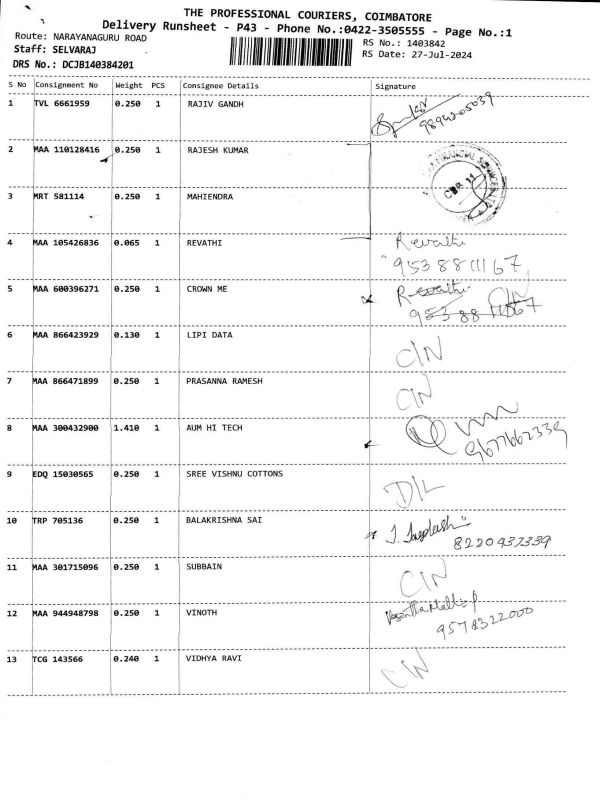 THE PROFESSIONAL COURIERS, COIMBATORE
Delivery Runsheet - P43 - Phone No.:0422-3505555 - Page No.:1
Route: NARAYANAGURU ROAD
RS No.: 1403842
Staff: SELVARAJ
RS Date: 27-Jul-2024
DRS No.: DCJB140384201
S No Consignment No Weight PCS Consignee Details Signature
1 TVL 6661959 0.250 1 RAJIV GANDH
2 MAA 110128416 0.250 1 RAJESH KUMAR
3 MRT 581114 0.250 1 MAHIENDRA
4 MAA 105426836 0.065 1 REVATHI Revathi
9538811167
5 MAA 600396271 0.250 1 CROWN ME Revathi C/N
6 MAA 866423929 0.130 1 LIPI DATA C/N
7 MAA 866471899 0.250 1 PRASANNA RAMESH C/N
8 MAA 300432900 1.410 1 AUM HI TECH
9677662339
9 EDQ 15030565 0.250 1 SREE VISHNU COTTONS D/L
10 TRP 705136 0.250 1 BALAKRISHNA SAI
8220437339
11 MAA 301715096 0.250 1 SUBBAIN C/N
12 MAA 944948798 0.250 1 VINOTH
9578322000
13 TCG 143566 0.240 1 VIDHYA RAVI C/N